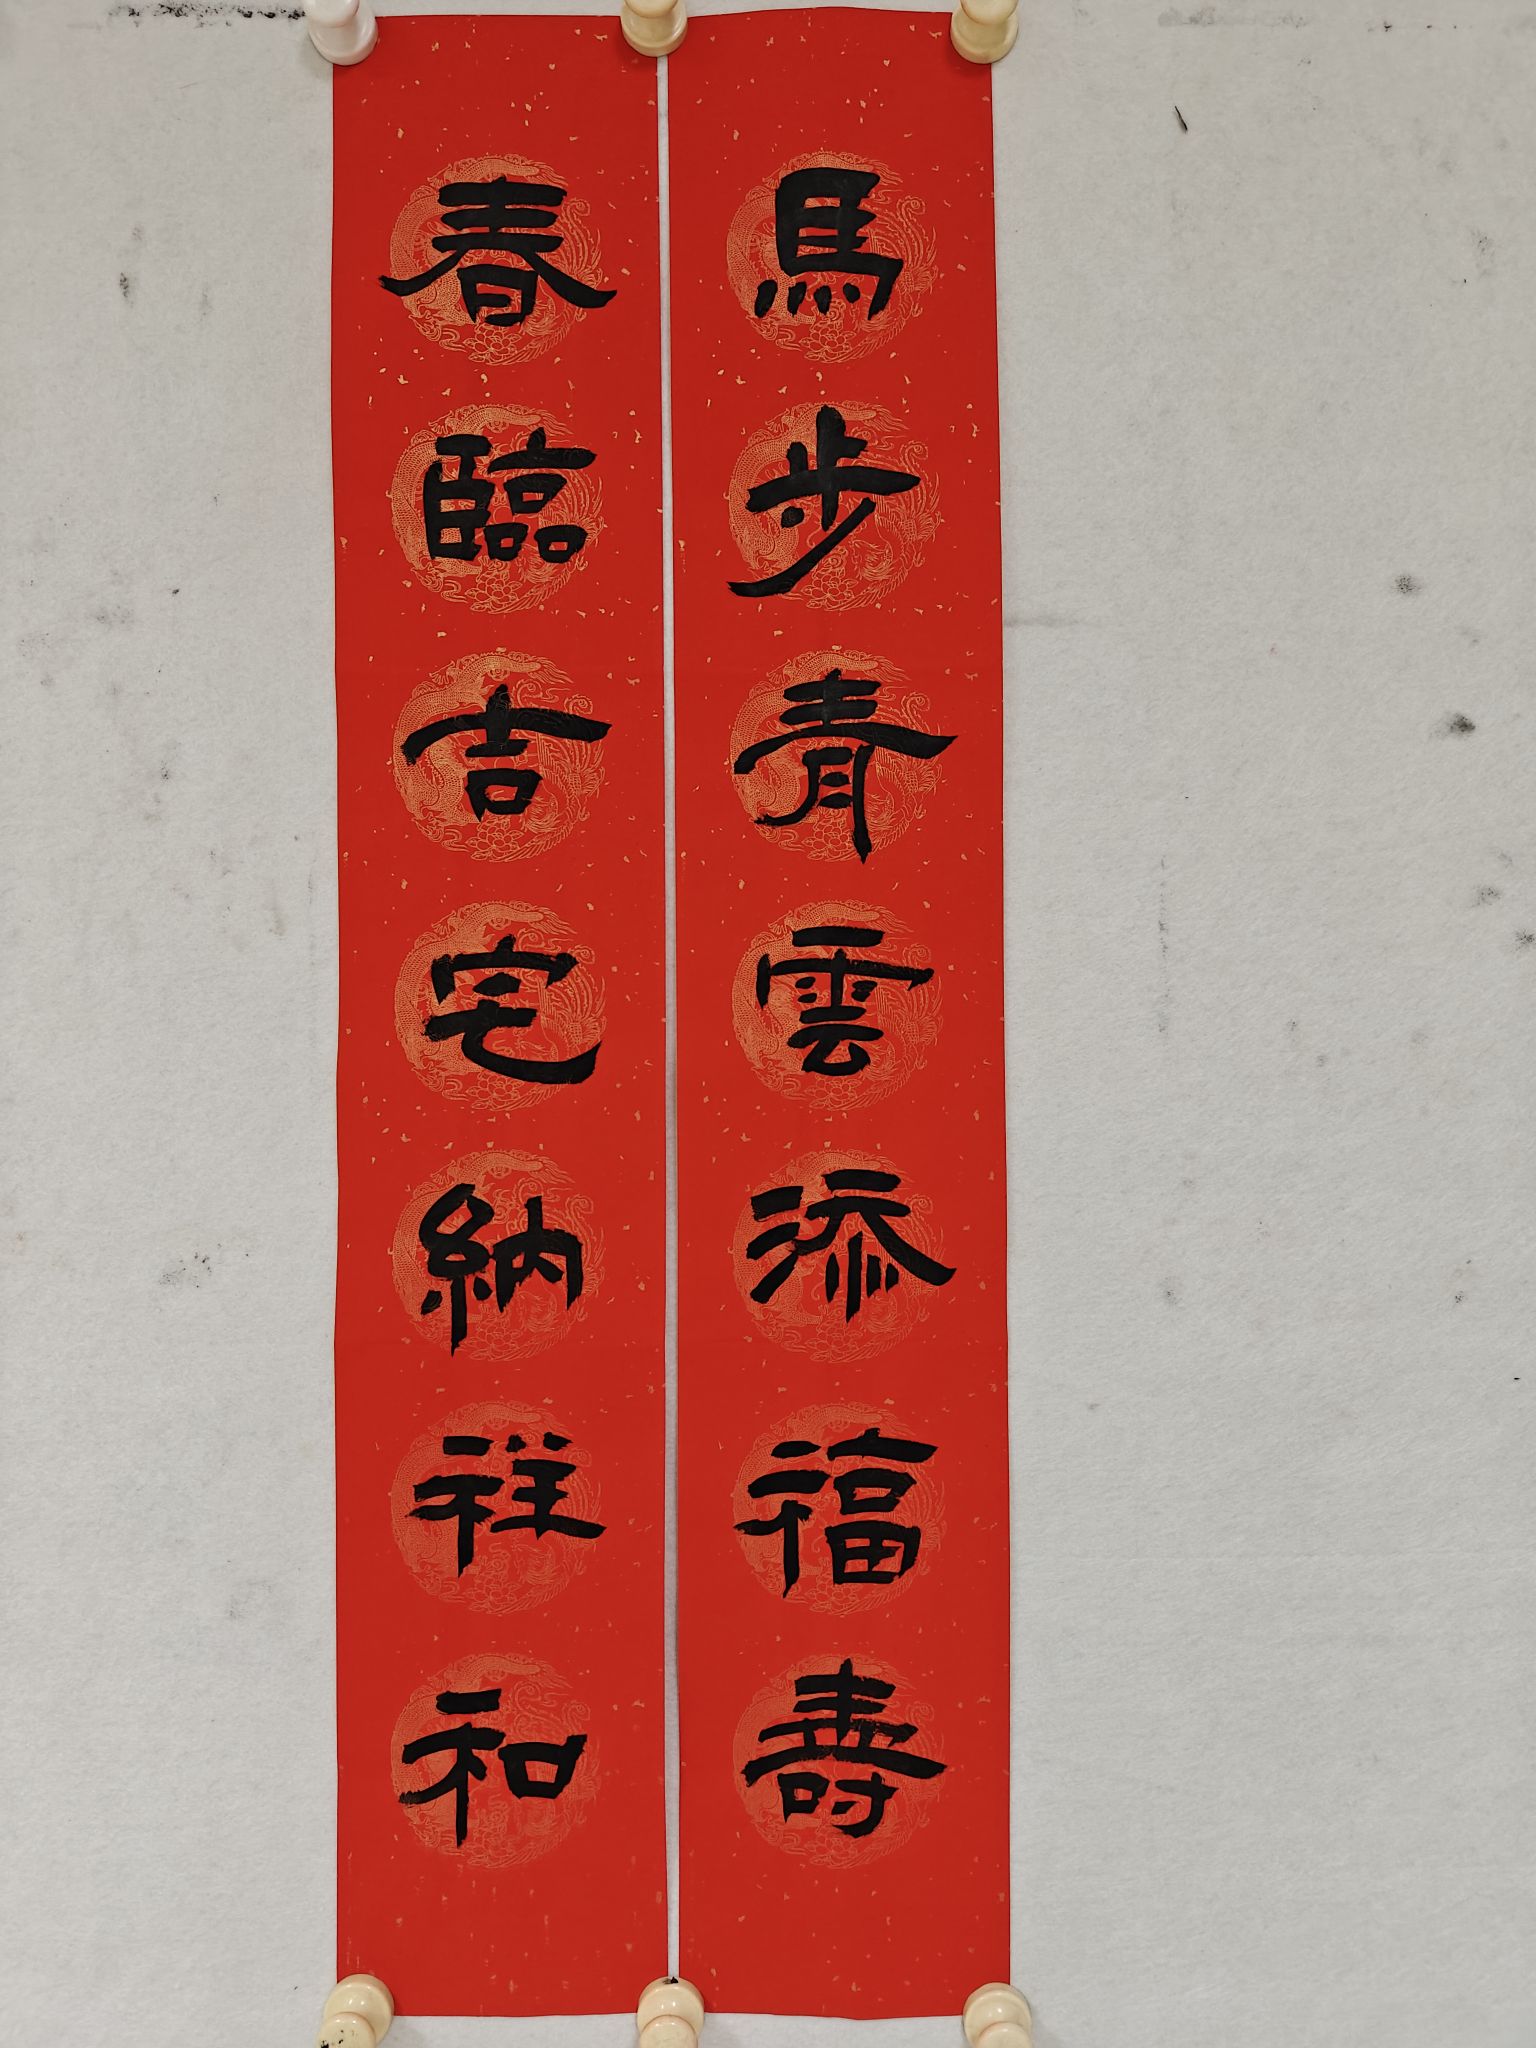 馬步青雲添福壽
春臨吉宅納祥和